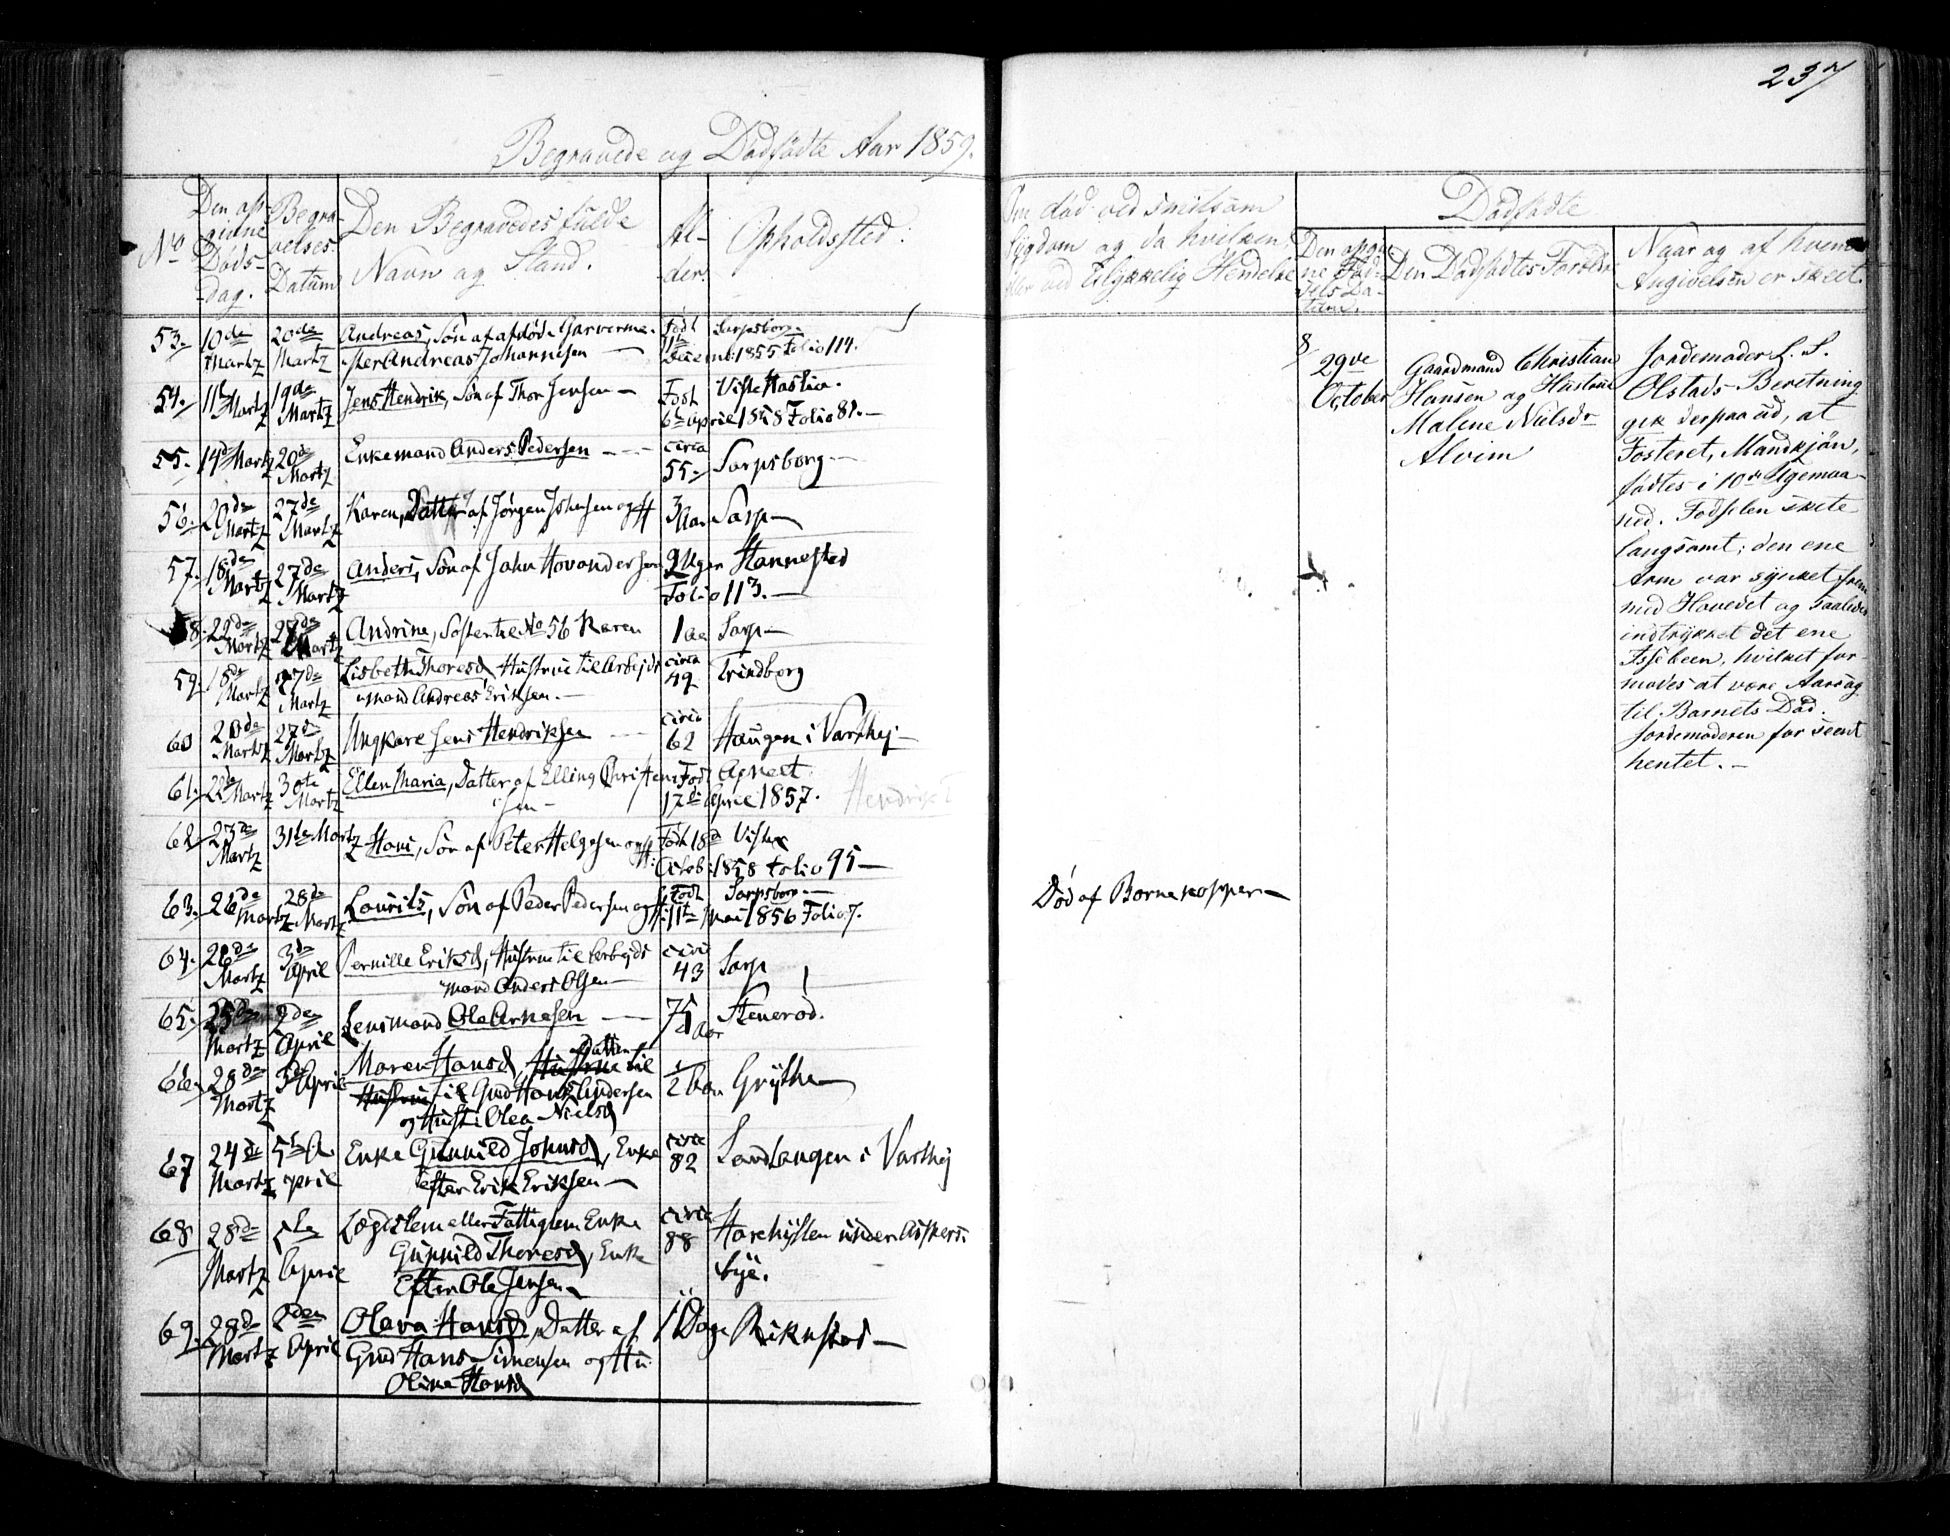 237
Begravede og Dødfødte Aar 1859.
No
Den angivne Døds-dag.
Begravelses Datum
Den Begravedes fulde Navn og Stand.
Alder.
Opholdssted.
død ved smitsom
Sygdom og da hvilken,
eller ved Ulykkelig Hendelse
Dødfødte
Den angivne Fødsels Datum.
Den Dødfødtes Forældre
Naar og af hvem
Angivelsen er skeet.
53. 10de Martz 20de Martz Andreas, Søn af afdøde Garverme-
ster Andreas Johannesen Født 11te Decemb: 1855 Folio 114. Sarpsborg.
54. 11te Martz 19de Martz Jens Hendrik, Søn af Thor Jensen Født
6te April 1858 Folio 81.
55. 14de Martz 20de Martz Enkemand Anders Pedersen circa 55. Sarpsborg
56. 20de Martz 27de Martz Karen, Datter af Jørgen Johnsen og H 3 Aar Sarp
57. 18de Martz 27de Martz Anders, Søn af John Hovandersen 9 Uger Hannestad
Folio 113.
58. 22de Martz 27de Martz Andrine, Søster til No 56 Karen 1 Sarp
59. 18de Martz 27de Martz Lisbeth Thoresd, Hustrue til Arbejds
mand Andreas Eriksen. circa 49 Trindborg
60 20de Martz 27de Martz Ungkarl Jens Hendriksen circa 62 Haugen i Varthej
61. 22de Martz 30te Martz Ellen Maria, Datter af Elling Christen
sen Født 17de April 1857.
62 23de Martz 31te Martz Hans, Søn af Peter Helgesen og H: Født 18de
Octob: 1858 Folio 95
63. 26de Martz 28de Martz Laurits, Søn af Peder Pedersen og H: Født Sarpsborg
11te Mai 1856 Folio 7. Død af Børnekopper
64. 26de Martz 3de April Pernille Eriksd, Hustrue til Arbejds
mand Anders Olsen circa 43 Sarp
65. Martz 2den April Lensmand Ole Arnesen 75 Aar Stenerød.
66. 28de Martz 3de April Maren Hansd, Datter
til Gmd Hans Andersen
og Hust: Olea Nielsd 1/2 Aar Grythe
67 24de Martz 5te April Enke Gunnild Johnsd, Enke
efter Erik Eriksen circa 82 Landhaugen i Varthej
68 28de Martz April Lægdslem eller Fattiglem Enke
Gunnild Thoresd, Enke
Efter Ole Jensen circa 88
69. 28de Martz 2den April Olava Hansd, Datter af
Gmd Hans Simensen og Hu:
Oline Hansd Dage
8
29de
October
Gaardmand Christian
Hansen og Hustrue
Malene Nielsdr
Alvim
Jordemoder L. S.
Olstads Beretning
gik derpaa ud, at
Fosteret, Mandkjøn,
fødtes i 10de Ugemaa-
ned. Fødselen skete
langsomt; den ene
Arm var synket frem
med Hovedet og saaledes
indtrykket det ene
Issebeen, hvilket for-
modes at være Aarsag
til Barnets Død.
Jordemoderen for seent
hentet.